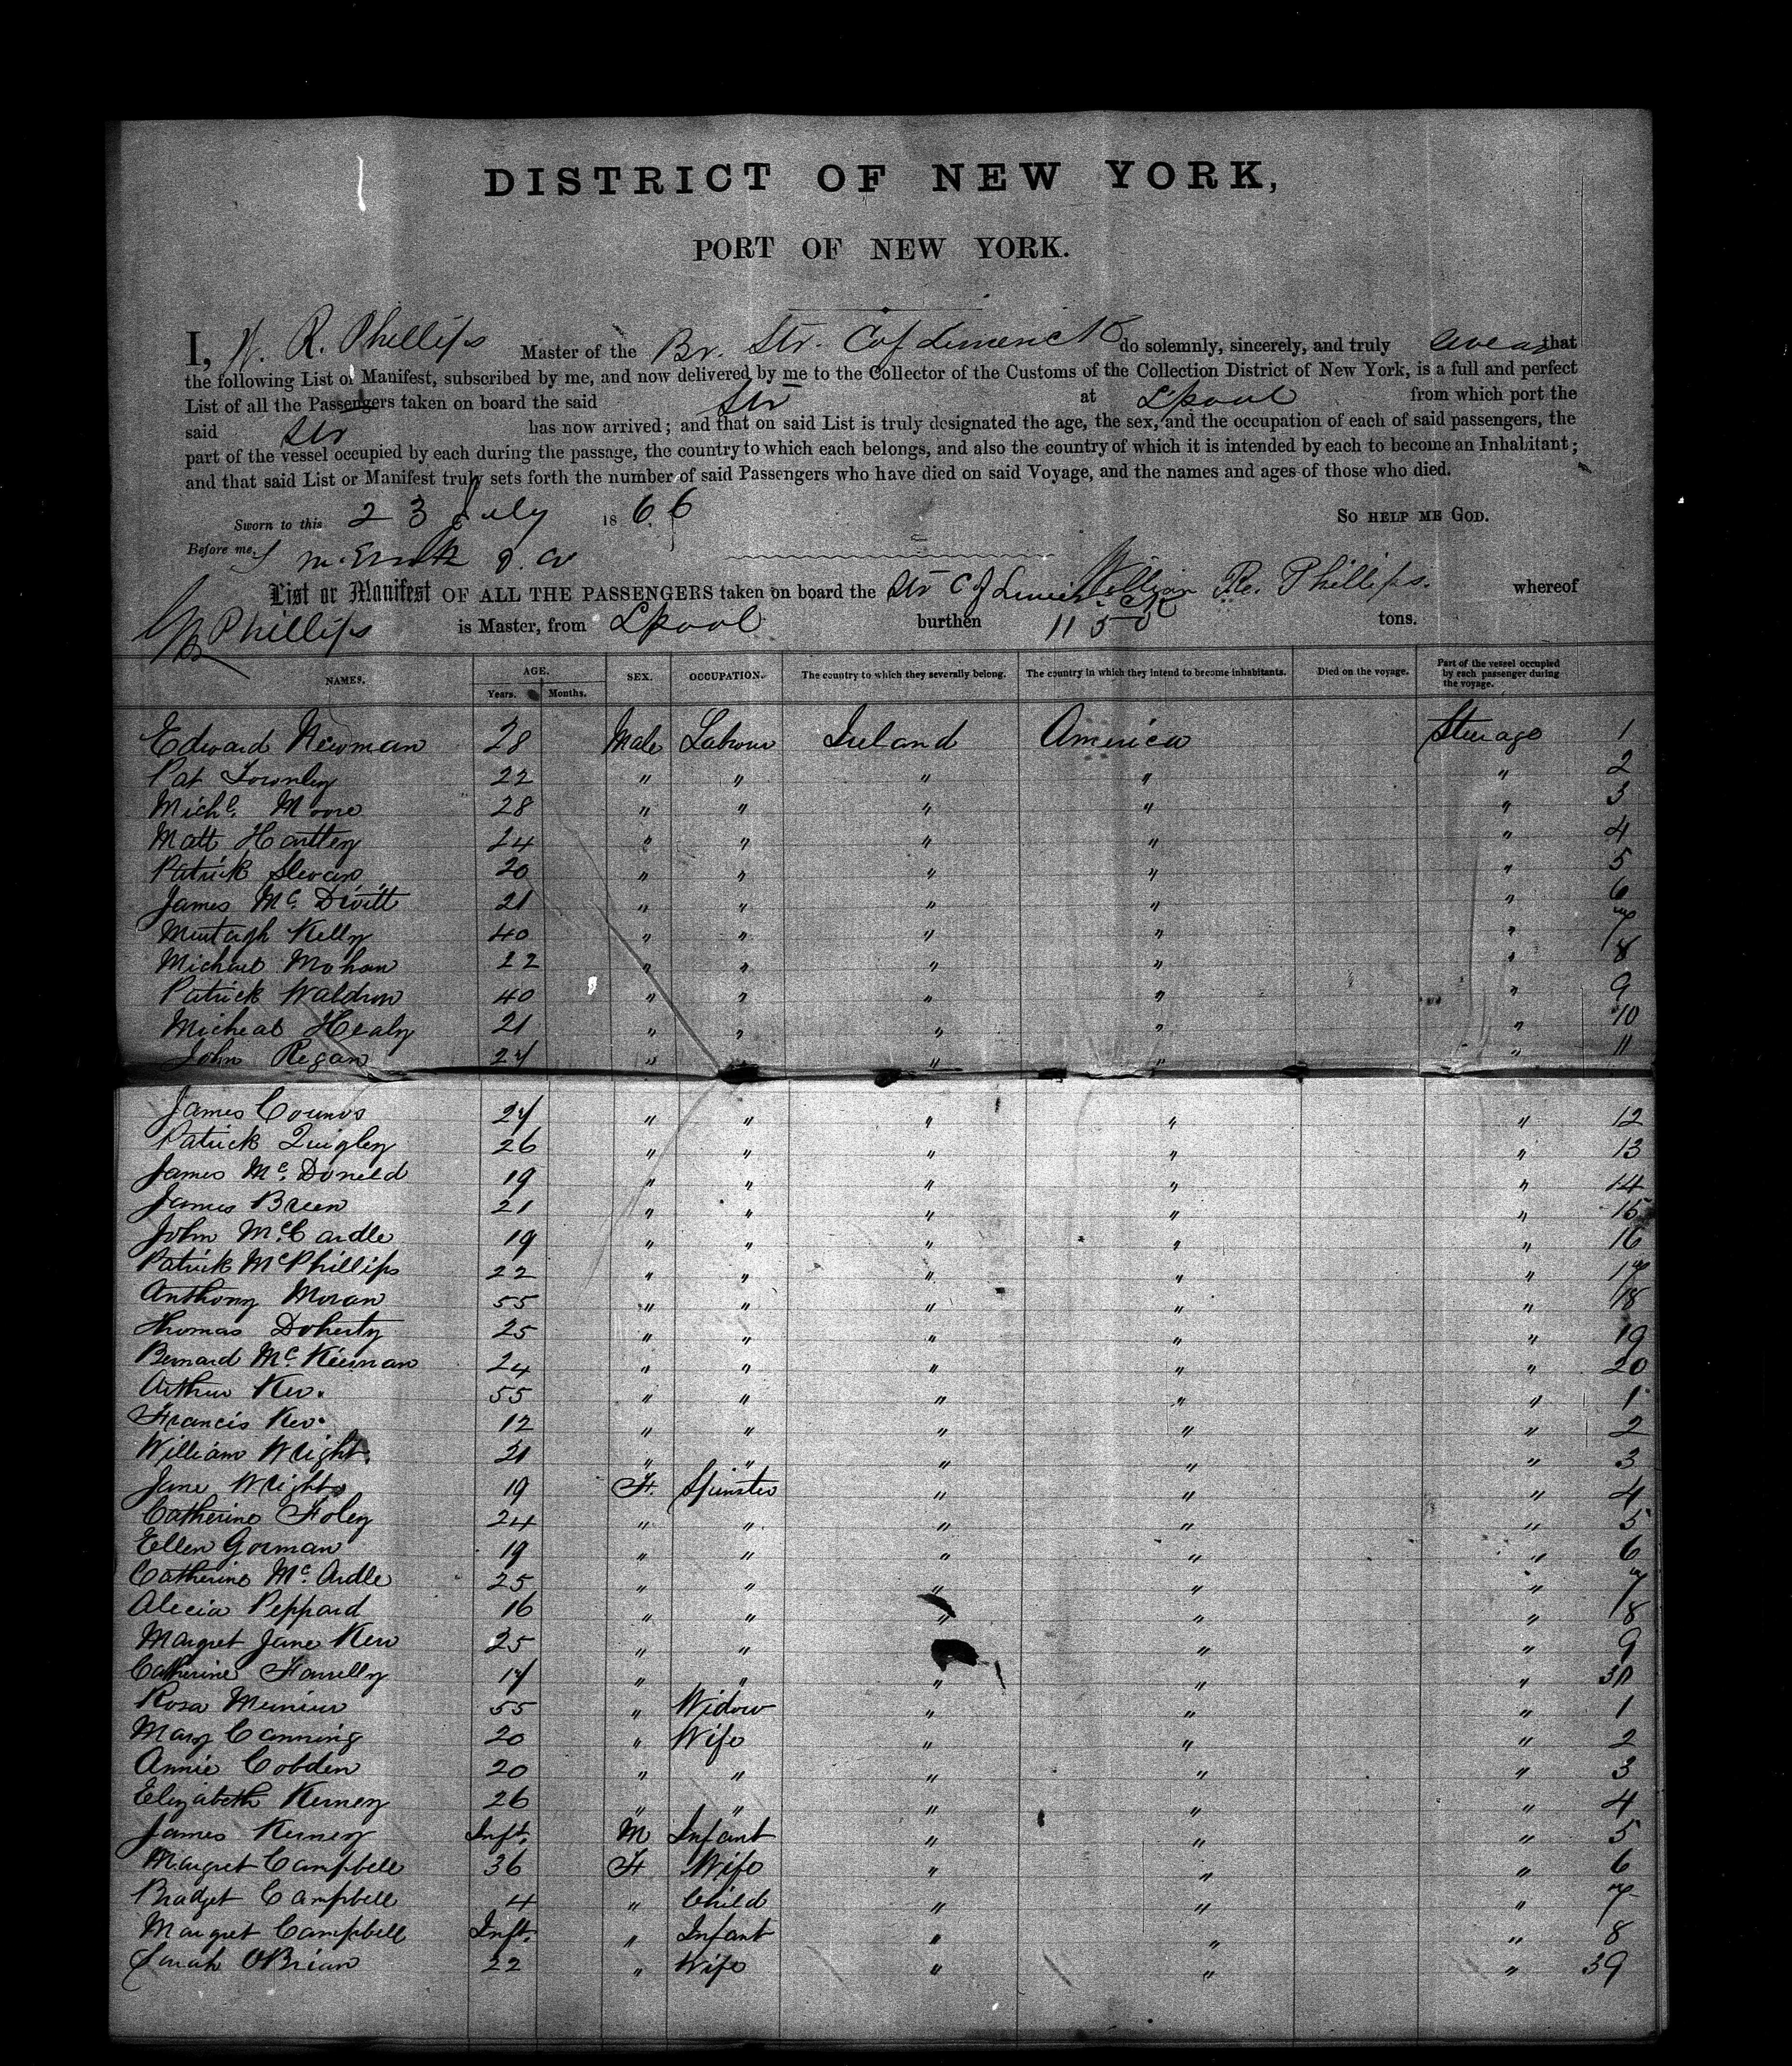 DISTRICT OF NEW YORK,
PORT OF NEW YORK.
I, W. R. Phillips Master of the Br. Str. C of Limerick do solemnly, sincerely, and truly swear that
the following List or Manifest, subscribed by me, and now delivered by me to the Collector of the Customs of the Collection District of New York, is a full and perfect
List of all the Passengers taken on board the said Str at L'pool from which port the
said Str has now arrived; and that on said List is truly designated the age, the sex, and the occupation of each of said passengers, the
part of the vessel occupied by each during the passage, the country to which each belongs, and also the country of which it is intended by each to become an Inhabitant;
and that said List or Manifest truly sets forth the number of said Passengers who have died on said Voyage, and the names and ages of those who died.
Sworn to this 23 July 1866 SO HELP ME GOD.
Before me,
List or Manifest OF ALL THE PASSENGERS taken on board the Str C of Limerick William R. Phillips. whereof
Phillips is Master, from L'pool burthen 1150 tons.
NAMES. AGE. Years. Months. SEX. OCCUPATION. The country to which they severally belong. The country in which they intend to become inhabitants. Died on the voyage. Part of the vessel occupied by each passenger during the voyage.
Edward Newman 28 Male Labour Ireland America Steerage 1
Pat Townley 22 " " " " " 2
Michl. Moore 28 " " " " " 3
Matt Hartley 24 " " " " " 4
Patrick Slevan 20 " " " " " 5
James Mc. Divitt 21 " " " " " 6
Murtagh Kelly 40 " " " " " 7
Michael Mohan 22 " " " " " 8
Patrick Waldron 40 " " " " " 9
Micheal Healy 21 " " " " " 10
John Regan 27 " " " " " 11
James 27 " " " " " 12
Patrick Quigley 26 " " " " " 13
James Mc. Doneld 19 " " " " " 14
James Breen 21 " " " " " 15
John Mc. Cardle 19 " " " " " 16
Patrick McPhillips 22 " " " " " 17
Anthony Moran 55 " " " " " 18
Thomas Doherty 25 " " " " " 19
Bernard Mc. Kiernan 24 " " " " " 20
Arthur Kerr. 55 " " " " " 1
Francis Kerr. 12 " " " " " 2
William Wright. 21 " " " " " 3
Jane Wright 19 F. Spinster " " " 4
Catherine Foley 24 " " " " " 5
Ellen Gorman 19 " " " " " 6
Catherine Mc. Ardle 25 " " " " " 7
Alecia Peppard 16 " " " " " 8
Margret Jane Kerr 25 " " " " " 9
Catherine Farrelly 17 " " " " " 30
Rosa 55 " Widow " " " 1
Mary Canning 20 " Wife " " " 2
Annie Cobden 20 " " " " " 3
Elizabeth Kerney 26 " " " " " 4
James Kerney Inft. M Infant " " " 5
Margret Campbell 36 F Wife " " " 6
Bradget Campbell 4 " Child " " " 7
Margret Campbell Inft. " Infant " " " 8
Sarah OBrian 22 " Wife " " " 39